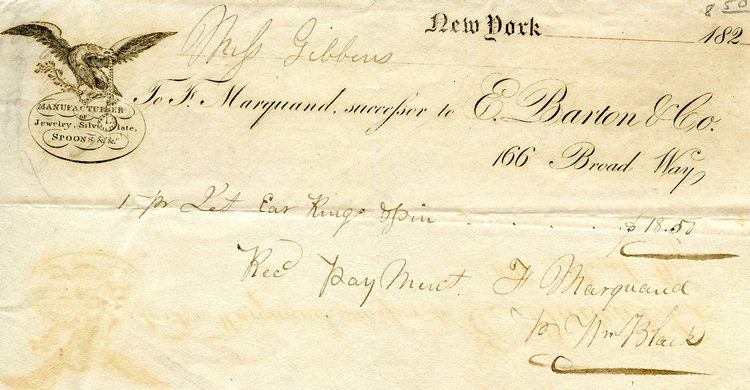 8 50
New York 182
Miss Gibbens
MANUFACTURER
OF
Jewelry, Silver Plate,
SPOONS &c.
To F. Marquand, successor to E. Barton & Co.
166 Broad Way,
1 pr Let Ear Rings & pin . . . . . . $18.50
Recd payment. F Marquand
pr Wm Black